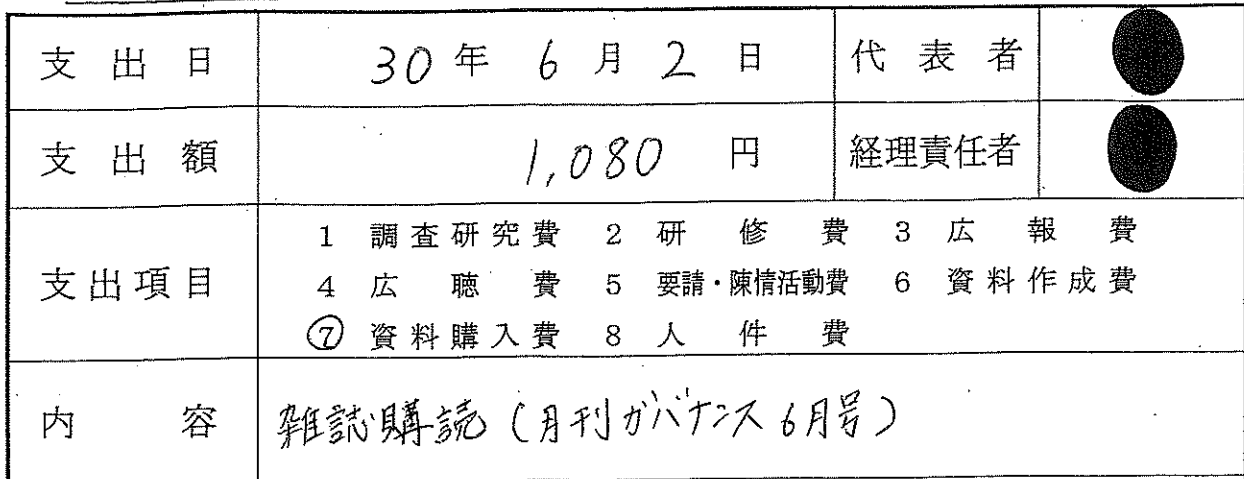 支出日 30年 6月 2日 代表者
支出額 1,080 円 経理責任者
1 調査研究費 2 研修費 3 広報費
支出項目 4 広聴費 5 要請・陳情活動費 6 資料作成費
⑦ 資料購入費 8 人件費
内容 雑誌購読(月刊ガバナンス6月号)